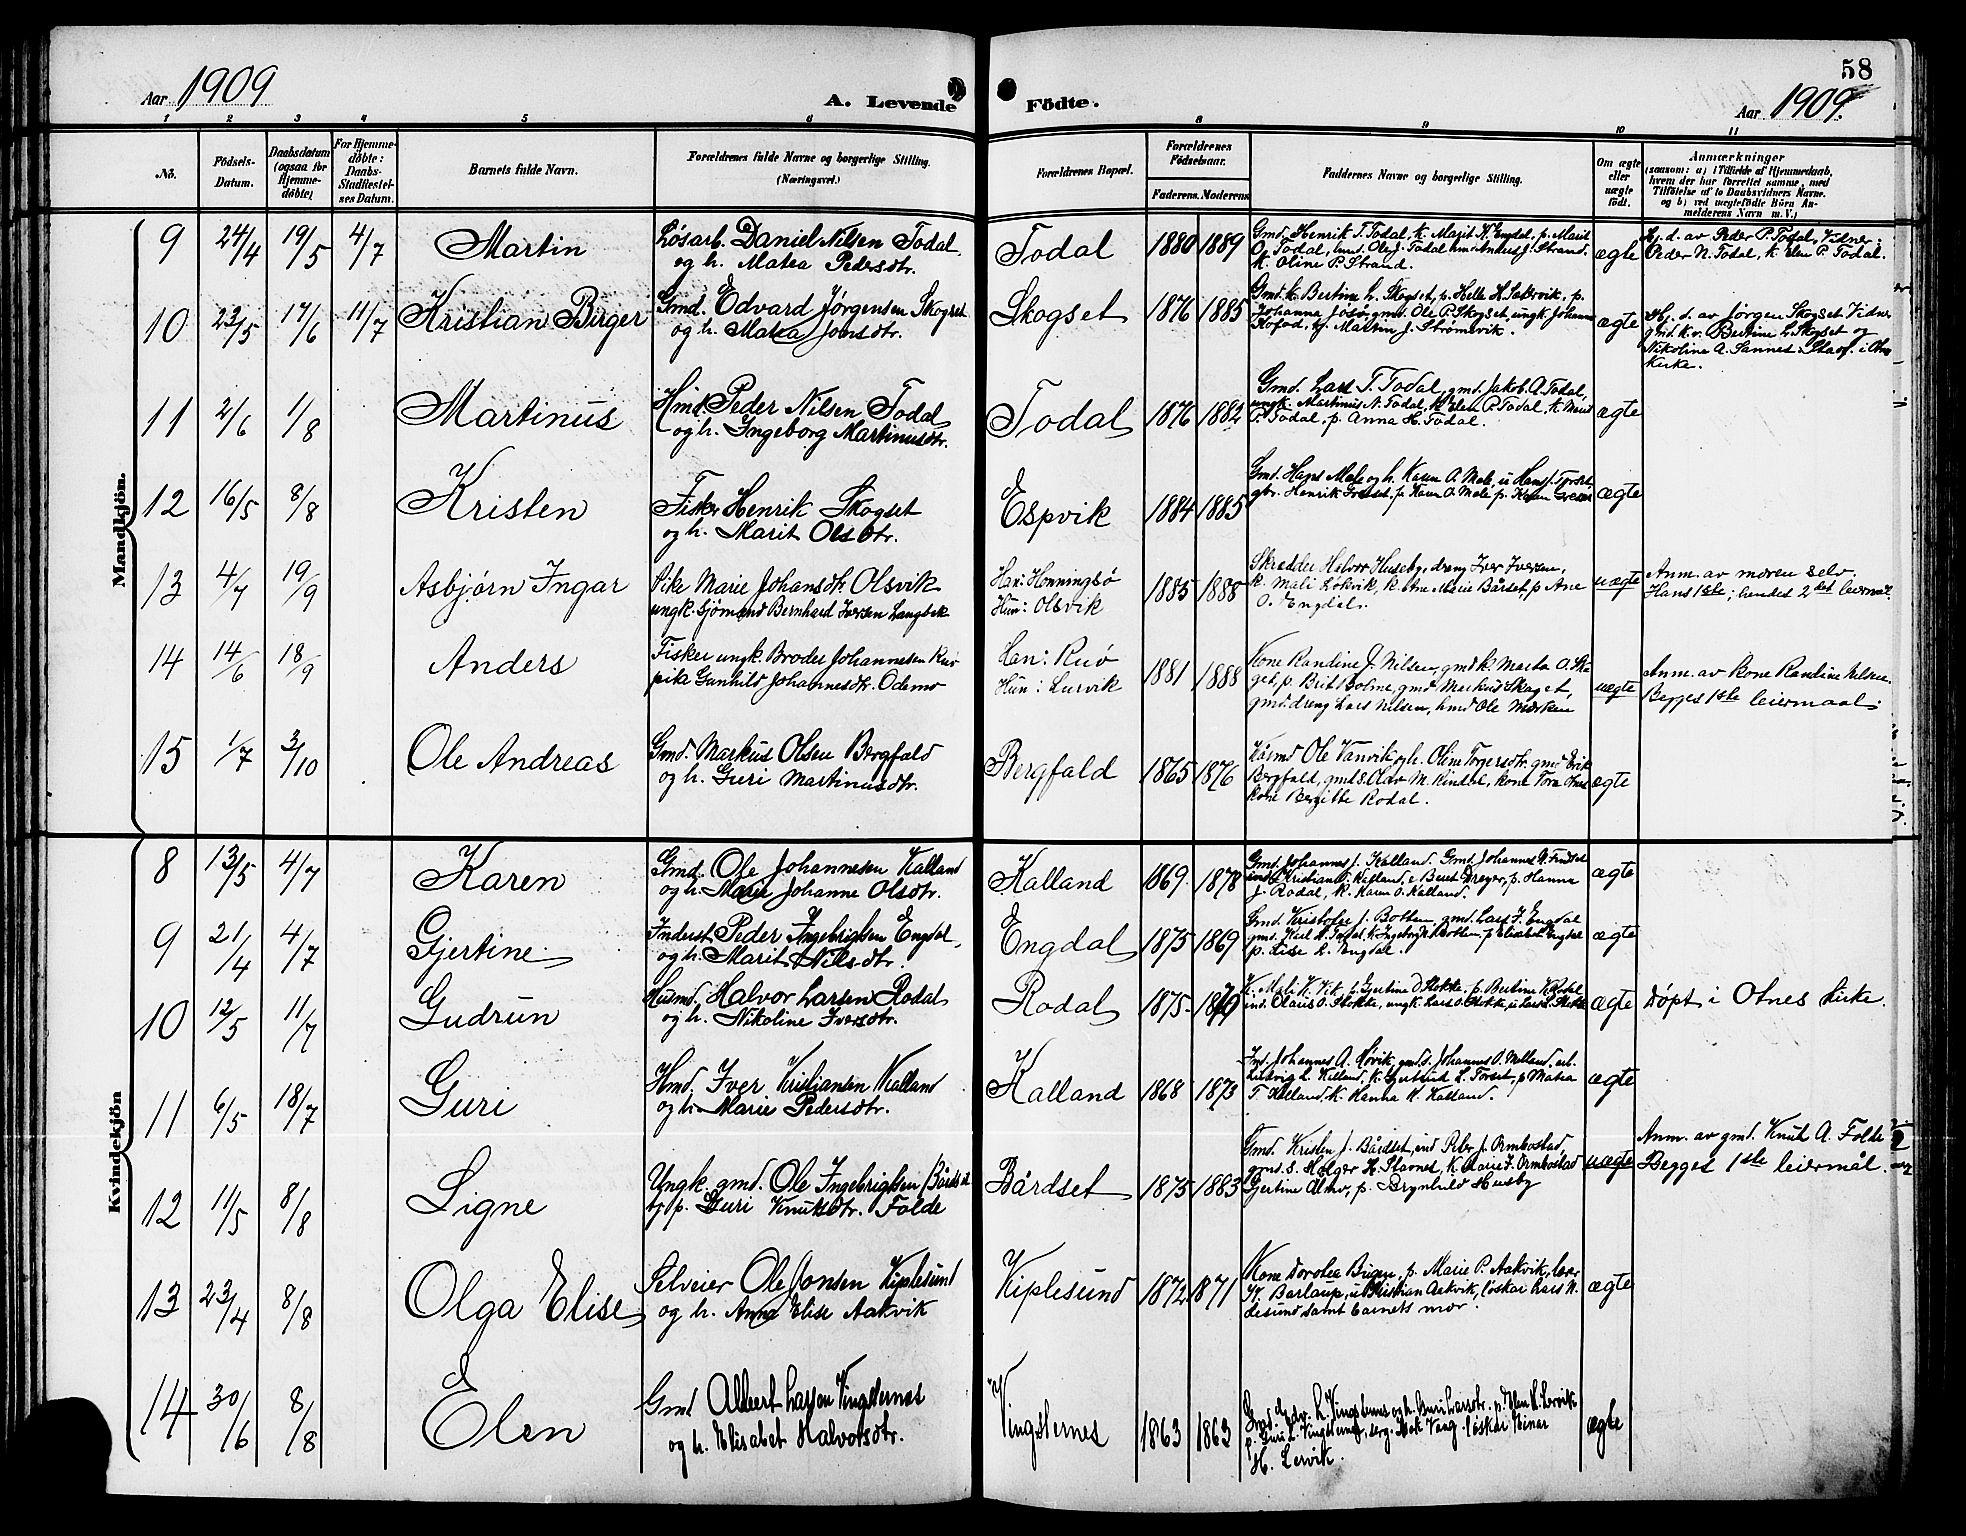 58
Aar 1909
A. Levende Födte.
Aar 1909.
1 2 3 4 5 6 8 9 10 11
No.
Födsels-Datum.
Daabsdatum (ogsaa for Hjemme-döbte)
For Hjemme-döbte: Daabs-Stadfæstel-ses Datum.
Barnets fulde Navn.
Forældrenes fulde Navne og borgerlige Stilling.
(Næringsvei.)
Forældrenes Bopæl.
Forældrenes Födselsaar.
Faderens. Moderens
Faddernes Navne og borgerlige Stilling.
Om ægte eller uægte födt.
Anmærkninger
(saasom: a) i Tilfælde af Hjemmedaab,
hvem der har forrettet samme, med
Tilföielse af to Daabsvidners Navne.
og b) ved uægtefödte Börn An-
melderens Navn m. V.)
Mandkjön.
9 24/4 19/5 4/7 Martin
Løsarb. Daniel Nilsen Todal
og h. Matea Pedersdtr.
Todal 1880 1889
Gmd. Henrik T. Todal, k. Marit K. Engdal, p. Marit
O. Todal, hmd. Ole J. Todal, hmd Anders J. Strand.
k. Oline P. Strand.
ægte
Hj. d. av Peder P. Todal, Vidner:
Peder N. Todal, k. Elen P. Todal.
10 23/5 17/6 11/7 Kristian Birger
Gmd. Edvard Jørgensen Skogset
og h. Matea Joersdtr.
Skogset 1876 1885
Gmd. k. Bertine L. Skogset, p. Helle H. Settervik, p.
Johanna Josø, gmd. Ole P. Skogset, ungk. Johannes
Kofoed, tj. Martin J. Strømsvik.
ægte
Hj. d. av Jørgen Skogset Vidner
gmd. k. v. Bertine L. Skogset og
Nikoline A. Sannes. Stadf. i Otnes
Kirke.
11 2/6 1/8 Martinus
Hmd. Peder Nilsen Todal
og h. Ingeborg Martinusdtr.
Todal 1876 1882
Gmd. Lars T. Todal, gmd. Jakob A. Todal,
ungk. Martinus N. Todal, k. Elen P. Todal, k. Marit
P. Todal, p. Anna H. Todal.
ægte
12 16/5 8/8 Kristen
Fisker Henrik Skogset
og h. Marit Olsdtr.
Espvik 1884 1885
Gmd. Hans Mele og h. Karen O. Mele, u. Hans J.
gbr. Henrik p. Karen O. Mele p. Karen
ægte
13 4/7 19/9 Asbjørn Ingar
Pike Marie Johansdtr. Olsvik
ungk. Sjømand Bernhard Iversen Langbek
Han: Honningsø
Hun: Olsvik
1885 1888
Skrædder Halvor Huseby, dreng Iver Iversen,
k. Mali Løkvik, k. Ane Marie Bårset, p. Ane
O. Engdal.
uægte
Anm. av moren selv.
Hans 1ste; hendes 2det leiermål.
14 14/6 18/9 Anders
Fisker ungk. Broder Johannesen Ruø
pike Gunhild Johannesdtr. Odemo
Han: Ruø
Hun: Lurvik
1881 1888
Kone Randine J. Nilsen, gmd k. Marta O. Ska-
get, p. Brit Bolme, gmd Markus Skaget,
gmd. dreng Lars Nilsen, hmd Ole Mærken
uægte
Anm. av Kone Randine Nilsen.
Begges 1ste leiermaal.
15 1/7 3/10 Ole Andreas
Gmd. Markus Olsen Bergfald
og h. Guri Martinusdtr.
Bergfald 1865 1876
Husmd Ole Vanvik og h. Oline Torgersdtr. gmd Erik
Bergfald, gmd s. Olav M. Kindol, kone Tora
kone Bergitte Rodal.
ægte
Kvindekjön
8 13/5 4/7 Karen
Gmd. Ole Johannesen Kalland
og h. Marie Johanne Olsdtr.
Kalland 1869. 1878
Gmd. Johannes J. Kalland. Gmd. Johannes
Kristian O. Kalland, Beret Dreyer, p. Hanna
J. Rodal, k. Karen O. Kalland.
ægte
9 21/4 4/7 Gjertine
Inderst Peder Ingebrigtsen Engdal,
og h. Marit Nilsdtr.
Engdal 1875 1869
Gmd. Kristofer J. Botten, gmd. Lars I. Engdal
gmd. Karl N. Todal, k. Ingeborg K. Botten, p. Elisabet Engdal
p. Lise L. Engdal.
ægte
10 12/5 11/7 Gudrun
Husmd, Halvor Larsen Rodal
og h. Nikoline Iversdtr.
Rodal 1875 1879
K. Mali K. Vik, p. Gjertine O. Stokke, p. Bertine K. Rodal
ind. Olaus O. Stokke, ungk. Lars O. Stokke, u. Lars L. Stokke
ægte
Døpt i Otnes kirke.
11 6/5 18/7 Guri
Hmd. Iver Kristiansen Kalland
og h. Marie Pedersdtr.
Kalland 1868 1873
Ind. Johannes A. Søvik, gmd. s. Johannes O. Melland. arb.
Ludvig L. Kalland, k. Gjertrud L. Torset, p. Matea
T. Kalland, k. Hanna K. Kalland.
ægte
12 11/5 8/8 Signe
Ungk. gmd. Ole Ingebrigtsen Bårdset
tj. p. Guri Knutsdtr. Folde
Bårdset 1875 1883
Gmd. Kristen J. Bårdset, ind Peter J. Ormbostad
gmd. s. Holger H. Stavnes, k. Marie J. Ormbostad
Gjertine p. Brynhild Husby
uægte
Anm. av gmd. Knut A. Folde
Begges 1ste leiermål.
13 23/4 8/8 Olga Elise
Selveier Ole Jonsen Kiplesund
og h. Anna Elise Aakvik
Kiplesund 1872 1871
Kone Dorotea Bugen, p. Marie P. Aakvik, lærer
Barlaup, u. Kristian Aakvik, løskar Lars K.
desund samt barnets mor.
ægte
14 30/6 8/8 Elen
Gmd Albert Larsen Vingsternes
og h. Elisabet Halvorsdtr.
Vingsternes 1863 1863
Gmd. Edv. R. Vingsternes og h. Guri Larsdtr. p. Elen H. Lervik
p. Guri L. Vingsternes, serg. Vaag. løskar Einar
H. Lervik.
ægte